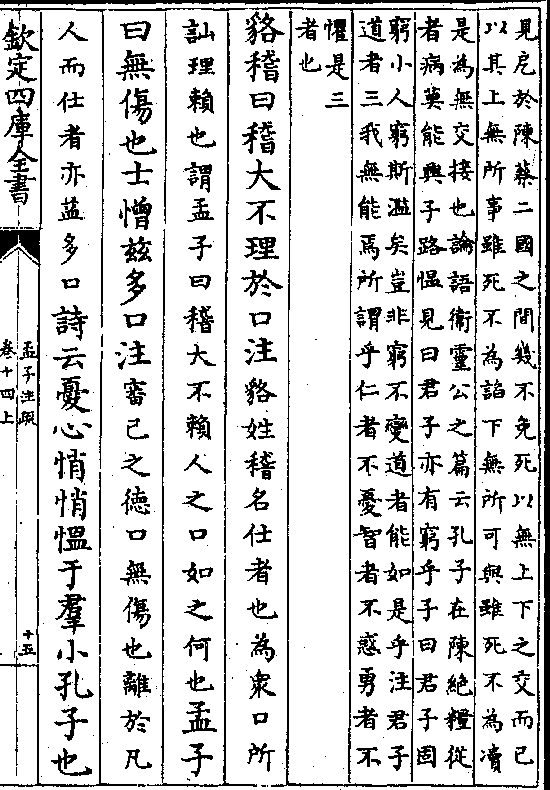 見戹於陳蔡二國之間幾不免死以無上下之交而已
以其上無所事雖死不為諂下無所可與雖死不為瀆
是為無交接也論語衛靈公之篇云孔子在陳絶糧從
者病莫能興子路愠見曰君子亦有窮乎子曰君子固
窮小人窮斯濫矣豈非窮不變道者能如是乎注君子
道者三我無能焉所謂乎仁者不憂智者不惑勇者不
懼是三
者也
貉稽曰稽大不理於口注貉姓稽名仕者也為衆口所
訕理賴也謂孟子曰稽大不賴人之口如之何也孟子
曰無傷也士憎兹多口注審己之德口無傷也離於凡
人而仕者亦益多口詩云憂心悄悄愠于羣小孔子也
欽定四庫全書
孟子注疏
卷十四上
十五